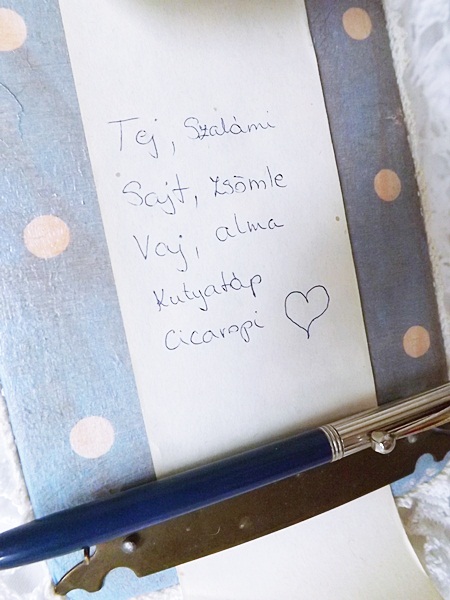 Tej, Szalámi
Sajt, zsömle
Vaj, alma
kutyatáp
cicaropi